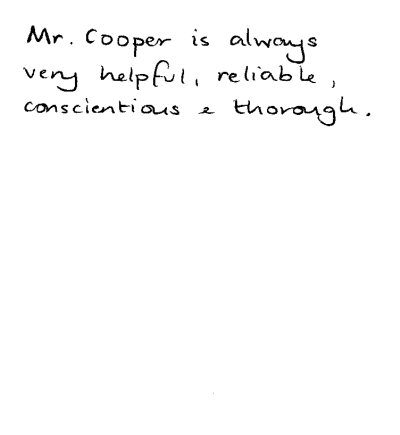 Mr. Cooper is always
very helpful, reliable,
conscientious & thorough.